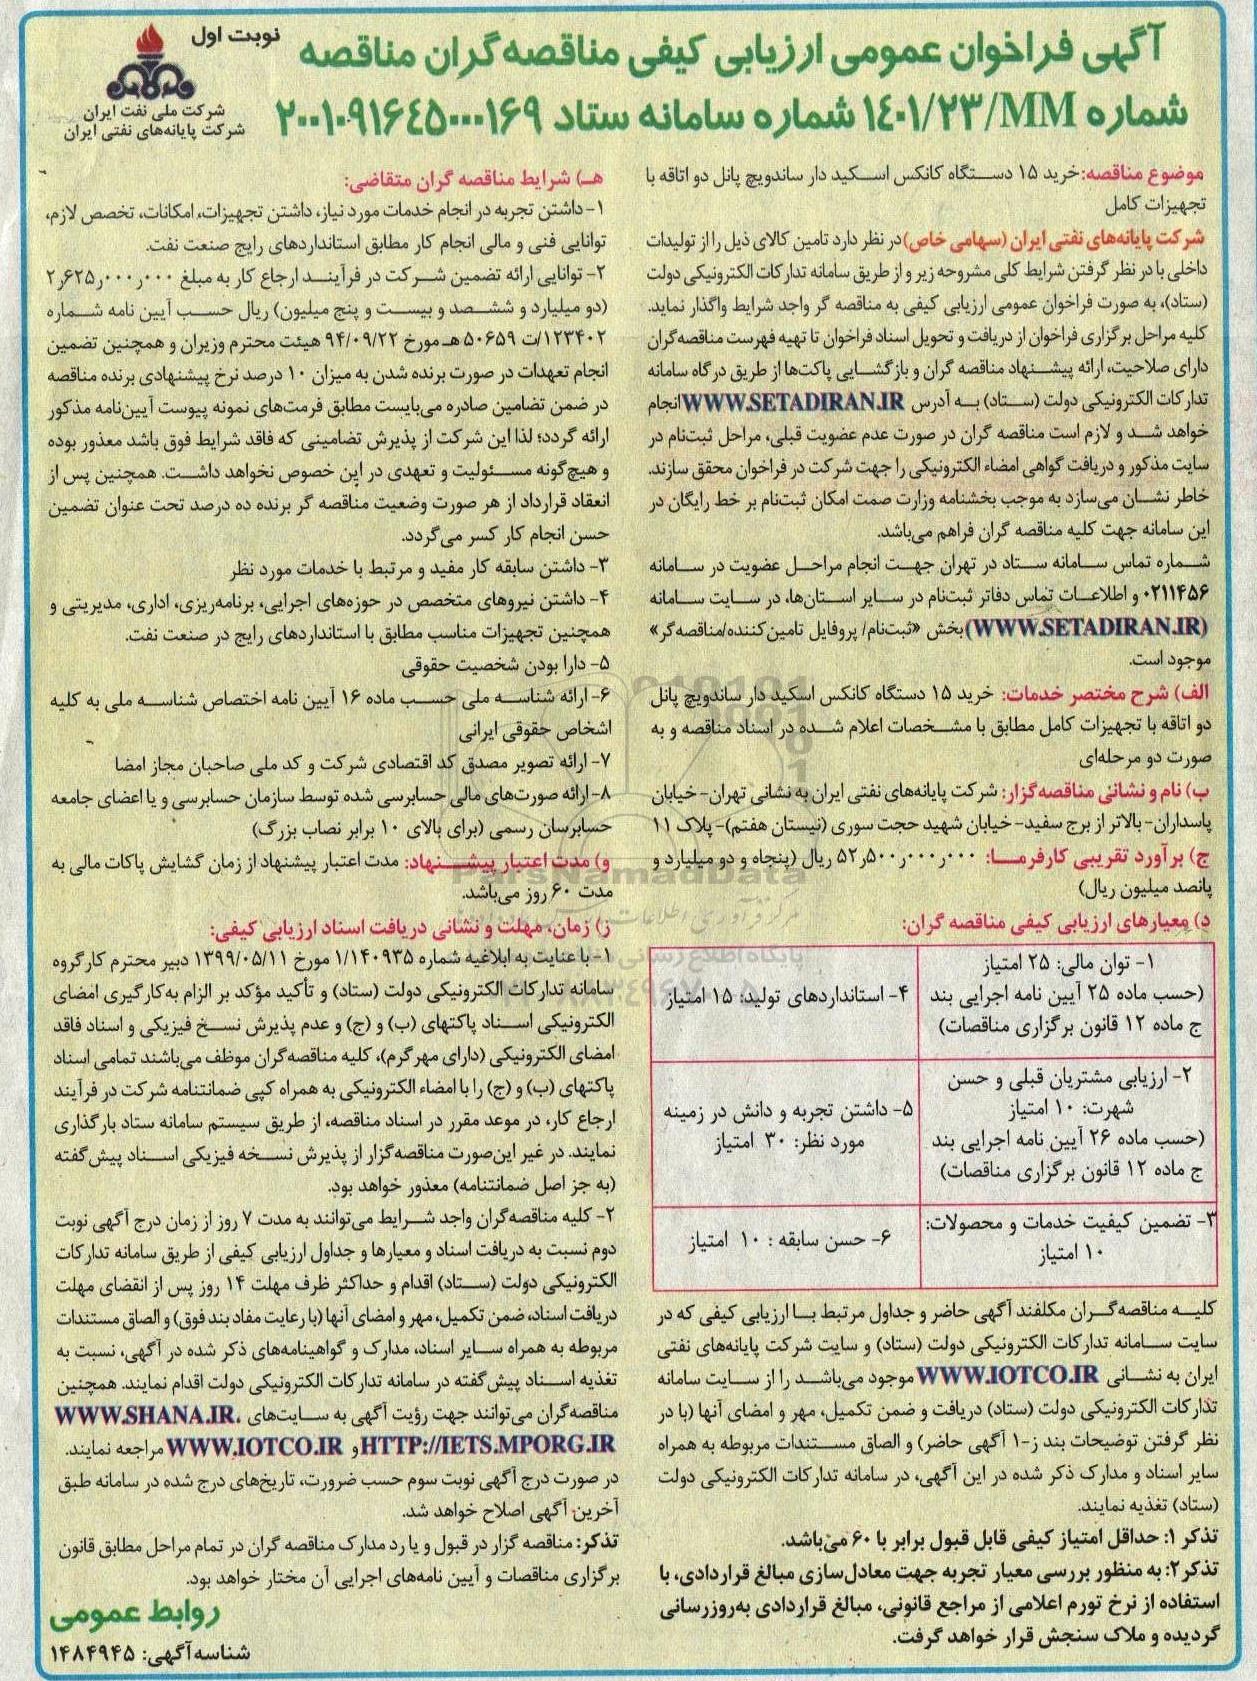 آگهی فراخوان عمومی ارزیابی کیفی مناقصه‌گران مناقصه
شماره ۱٤۰۱/۲۳/MM شماره سامانه ستاد ۲۰۰۱۰۹۱۶٤۵۰۰۰۱۶۹
نوبت اول
شرکت ملی نفت ایران
شرکت پایانه‌های نفتی ایران
موضوع مناقصه: خرید ۱۵ دستگاه کانکس اسکید دار ساندویچ پانل دو اتاقه با
تجهیزات کامل
شرکت پایانه‌های نفتی ایران (سهامی خاص) در نظر دارد تامین کالای ذیل را از تولیدات
داخلی با در نظر گرفتن شرایط کلی مشروحه زیر و از طریق سامانه تدارکات الکترونیکی دولت
(ستاد)، به صورت فراخوان عمومی ارزیابی کیفی به مناقصه گر واجد شرایط واگذار نماید.
کلیه مراحل برگزاری فراخوان از دریافت و تحویل اسناد فراخوان تا تهیه فهرست مناقصه‌گران
دارای صلاحیت، ارائه پیشنهاد مناقصه گران و بازگشایی پاکت‌ها از طریق درگاه سامانه
تدارکات الکترونیکی دولت (ستاد) به آدرس WWW.SETADIRAN.IR انجام
خواهد شد و لازم است مناقصه گران در صورت عدم عضویت قبلی، مراحل ثبت‌نام در
سایت مذکور و دریافت گواهی امضاء الکترونیکی را جهت شرکت در فراخوان محقق سازند.
خاطر نشان می‌سازد به موجب بخشنامه وزارت صمت امکان ثبت‌نام بر خط رایگان در
این سامانه جهت کلیه مناقصه گران فراهم می‌باشد.
شماره تماس سامانه ستاد در تهران جهت انجام مراحل عضویت در سامانه
۰۲۱۱۴۵۶ و اطلاعات تماس دفاتر ثبت‌نام در سایر استان‌ها، در سایت سامانه
(WWW.SETADIRAN.IR) بخش «ثبت‌نام/ پروفایل تامین‌کننده/مناقصه‌گر»
موجود است.
الف) شرح مختصر خدمات: خرید ۱۵ دستگاه کانکس اسکید دار ساندویچ پانل
دو اتاقه با تجهیزات کامل مطابق با مشخصات اعلام شده در اسناد مناقصه و به
صورت دو مرحله‌ای
ب) نام و نشانی مناقصه‌گزار: شرکت پایانه‌های نفتی ایران به نشانی تهران- خیابان
پاسداران- بالاتر از برج سفید- خیابان شهید حجت سوری (نیستان هفتم)- پلاک ۱۱
ج) برآورد تقریبی کارفرما: ۵۲٫۵۰۰٫۰۰۰٫۰۰۰ ریال (پنجاه و دو میلیارد و
پانصد میلیون ریال)
د) معیارهای ارزیابی کیفی مناقصه گران:
۱- توان مالی: ۲۵ امتیاز
(حسب ماده ۲۵ آیین نامه اجرایی بند
ج ماده ۱۲ قانون برگزاری مناقصات)
۴- استانداردهای تولید: ۱۵ امتیاز
۲- ارزیابی مشتریان قبلی و حسن
شهرت: ۱۰ امتیاز
(حسب ماده ۲۶ آیین نامه اجرایی بند
ج ماده ۱۲ قانون برگزاری مناقصات)
۵- داشتن تجربه و دانش در زمینه
مورد نظر: ۳۰ امتیاز
۳- تضمین کیفیت خدمات و محصولات:
۱۰ امتیاز
۶- حسن سابقه : ۱۰ امتیاز
کلیه مناقصه‌گران مکلفند آگهی حاضر و جداول مرتبط با ارزیابی کیفی که در
سایت سامانه تدارکات الکترونیکی دولت (ستاد) و سایت شرکت پایانه‌های نفتی
ایران به نشانی WWW.IOTCO.IR موجود می‌باشد را از سایت سامانه
تدارکات الکترونیکی دولت (ستاد) دریافت و ضمن تکمیل، مهر و امضای آنها (با در
نظر گرفتن توضیحات بند ز-۱ آگهی حاضر) و الصاق مستندات مربوطه به همراه
سایر اسناد و مدارک ذکر شده در این آگهی، در سامانه تدارکات الکترونیکی دولت
(ستاد) تغذیه نمایند.
تذکر ۱: حداقل امتیاز کیفی قابل قبول برابر با ۶۰ می‌باشد.
تذکر۲: به منظور بررسی معیار تجربه جهت معادل‌سازی مبالغ قراردادی، با
استفاده از نرخ تورم اعلامی از مراجع قانونی، مبالغ قراردادی به‌روزرسانی
گردیده و ملاک سنجش قرار خواهد گرفت.
هـ) شرایط مناقصه گران متقاضی:
۱- داشتن تجربه در انجام خدمات مورد نیاز، داشتن تجهیزات، امکانات، تخصص لازم،
توانایی فنی و مالی انجام کار مطابق استانداردهای رایج صنعت نفت.
۲- توانایی ارائه تضمین شرکت در فرآیند ارجاع کار به مبلغ ۲٫۶۲۵٫۰۰۰٫۰۰۰
(دو میلیارد و ششصد و بیست و پنج میلیون) ریال حسب آیین نامه شماره
۱۲۳۴۰۲/ت ۵۰۶۵۹ هـ مورخ ۹۴/۰۹/۲۲ هیئت محترم وزیران و همچنین تضمین
انجام تعهدات در صورت برنده شدن به میزان ۱۰ درصد نرخ پیشنهادی برنده مناقصه
در ضمن تضامین صادره می‌بایست مطابق فرمت‌های نمونه پیوست آیین‌نامه مذکور
ارائه گردد؛ لذا این شرکت از پذیرش تضامینی که فاقد شرایط فوق باشد معذور بوده
و هیچ‌گونه مسئولیت و تعهدی در این خصوص نخواهد داشت. همچنین پس از
انعقاد قرارداد از هر صورت وضعیت مناقصه گر برنده ده درصد تحت عنوان تضمین
حسن انجام کار کسر می‌گردد.
۳- داشتن سابقه کار مفید و مرتبط با خدمات مورد نظر
۴- داشتن نیروهای متخصص در حوزه‌های اجرایی، برنامه‌ریزی، اداری، مدیریتی و
همچنین تجهیزات مناسب مطابق با استانداردهای رایج در صنعت نفت.
۵- دارا بودن شخصیت حقوقی
۶- ارائه شناسه ملی حسب ماده ۱۶ آیین نامه اختصاص شناسه ملی به کلیه
اشخاص حقوقی ایرانی
۷- ارائه تصویر مصدق کد اقتصادی شرکت و کد ملی صاحبان مجاز امضا
۸- ارائه صورت‌های مالی حسابرسی شده توسط سازمان حسابرسی و یا اعضای جامعه
حسابرسان رسمی (برای بالای ۱۰ برابر نصاب بزرگ)
و) مدت اعتبار پیشنهاد: مدت اعتبار پیشنهاد از زمان گشایش پاکات مالی به
مدت ۶۰ روز می‌باشد.
ز) زمان، مهلت و نشانی دریافت اسناد ارزیابی کیفی:
۱- با عنایت به ابلاغیه شماره ۱/۱۴۰۹۳۵ مورخ ۱۳۹۹/۰۵/۱۱ دبیر محترم کارگروه
سامانه تدارکات الکترونیکی دولت (ستاد) و تأکید مؤکد بر الزام به‌کارگیری امضای
الکترونیکی اسناد پاکتهای (ب) و (ج) و عدم پذیرش نسخ فیزیکی و اسناد فاقد
امضای الکترونیکی (دارای مهر گرم)، کلیه مناقصه‌گران موظف می‌باشند تمامی اسناد
پاکتهای (ب) و (ج) را با امضاء الکترونیکی به همراه کپی ضمانتنامه شرکت در فرآیند
ارجاع کار، در موعد مقرر در اسناد مناقصه، از طریق سیستم سامانه ستاد بارگذاری
نمایند. در غیر این‌صورت مناقصه‌گزار از پذیرش نسخه فیزیکی اسناد پیش‌گفته
(به جز اصل ضمانتنامه) معذور خواهد بود.
۲- کلیه مناقصه‌گران واجد شرایط می‌توانند به مدت ۷ روز از زمان درج آگهی نوبت
دوم نسبت به دریافت اسناد و معیارها و جداول ارزیابی کیفی از طریق سامانه تدارکات
الکترونیکی دولت (ستاد) اقدام و حداکثر ظرف مهلت ۱۴ روز پس از انقضای مهلت
دریافت اسناد، ضمن تکمیل، مهر و امضای آنها (با رعایت مفاد بند فوق) و الصاق مستندات
مربوطه به همراه سایر اسناد، مدارک و گواهینامه‌های ذکر شده در آگهی، نسبت به
تغذیه اسناد پیش‌گفته در سامانه تدارکات الکترونیکی دولت اقدام نمایند. همچنین
مناقصه‌گران می‌توانند جهت رؤیت آگهی به سایت‌های WWW.SHANA.IR،
HTTP://IETS.MPORG.IR و WWW.IOTCO.IR مراجعه نمایند.
در صورت درج آگهی نوبت سوم حسب ضرورت، تاریخ‌های درج شده در سامانه طبق
آخرین آگهی اصلاح خواهد شد.
تذکر: مناقصه گزار در قبول و یا رد مدارک مناقصه گران در تمام مراحل مطابق قانون
برگزاری مناقصات و آیین نامه‌های اجرایی آن مختار خواهد بود.
روابط عمومی
شناسه آگهی: ۱۴۸۴۹۴۵
ParsNamadData